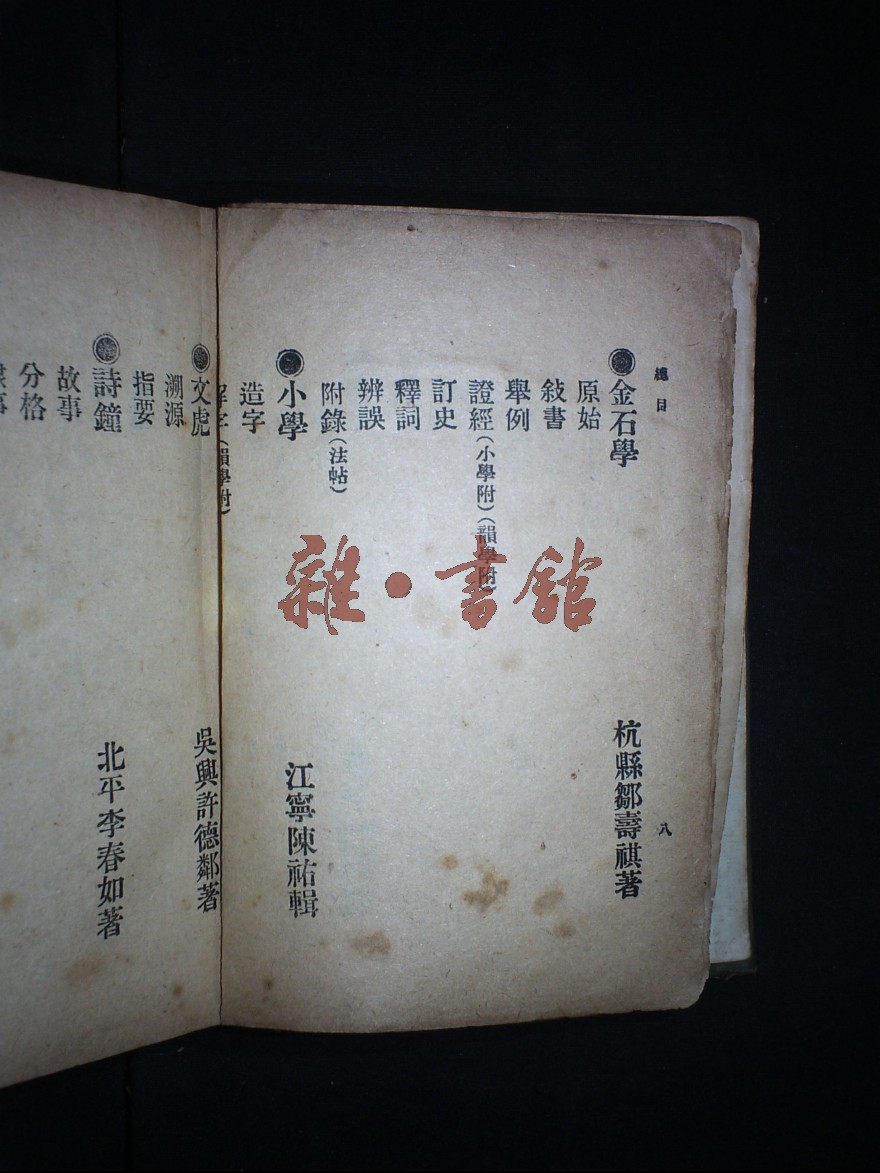 總目
八
金石學
杭縣鄒壽祺著
原始
敍書
舉例
證經(小學附)(韻學附)
訂史
釋詞
辨誤
附錄(法帖)
小學
江寧陳祐輯
造字
解字(韻學附)
文虎
吳興許德鄰著
溯源
指要
詩鐘
北平李春如著
故事
分格
雜·書館